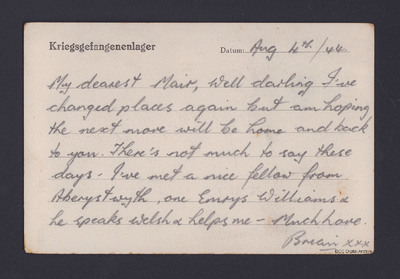 Kriegsgefangenenlager
Datum: Aug 4th/44
My dearest Mair, Well darling I've
changed places again but am hoping
the next move will be home and back
to you. There's not much to say these
days - I've met a nice fellow from
Aberystwyth, one Emrys Williams &
he speaks welsh & helps me - Much love.
Brian xxx